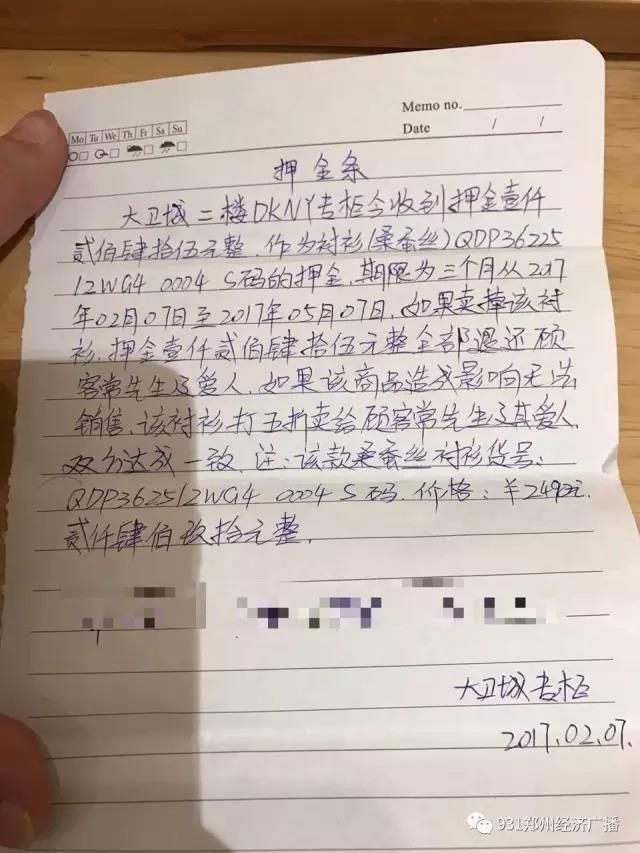 Memo no.
Date / /
Mo Tu We Th Fr Sa Su
押金条
大卫城二楼DKNY专柜今收到押金壹仟
贰佰肆拾伍元整.作为衬衫(桑蚕丝)QDP36225
12WG4 0004 S码的押金,期限为三个月从2017
年02月07日至2017年05月07日,如果卖掉该衬
衫,押金壹仟贰佰肆拾伍元整全部退还顾
客常先生及爱人.如果该商品造成影响无法
销售,该衬衫打五折卖给顾客常先生及其爱人,
双方达成一致.注:该款桑蚕丝衬衫货号:
QDP362512WG4 0004 S码.价格:¥2490元.
贰仟肆佰玖拾元整.
大卫城专柜
2017.02.07.
931郑州经济广播